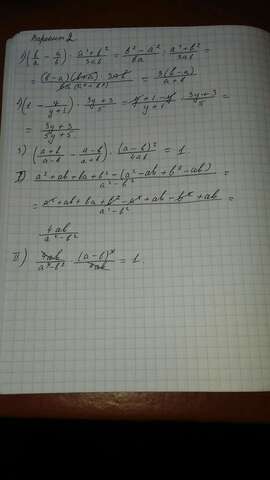 Вариант 2
1) (b/a - a/b) · a²+b²/3ab = b²-a²/ba : a²+b²/3ab =
= (b-a)(b+a) · 3ab / ba(a²+b²) = 3(b-a)/a+b
2) (1 - y/y+1) · 3y+3/5 = y+1-y/y+1 · 3y+3/5 =
= 3y+3/5y+5
3) (a+b/a-b - a-b/a+b) · (a-b)²/4ab = 1
I) a²+ab+ba+b²-(a²-ab+b²-ab)/a²-b² =
= a²+ab+ba+b²-a²+ab-b²+ab/a²-b² =
4ab/a²-b²
II) 4ab/a²-b² · (a-b)²/4ab = 1.